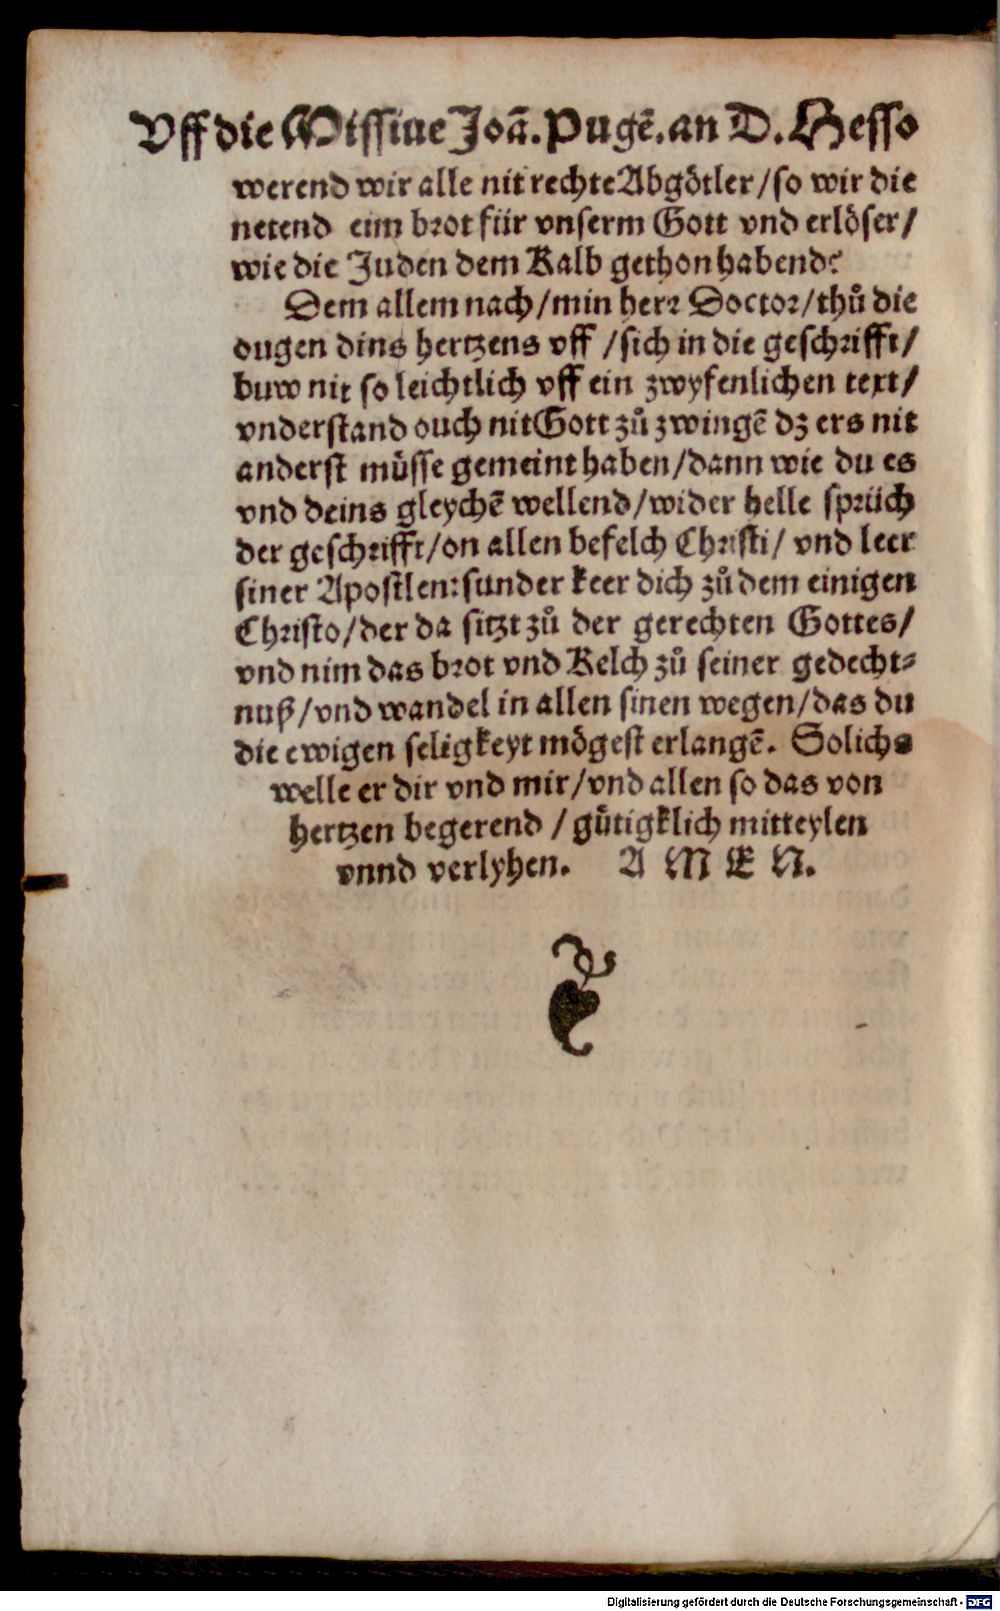 Vff die Missiue Joā. Pugē. an D. Hesso
werend wir alle nit rechte Abgötler / so wir die
netend eim brot für vnserm Gott vnd erlöser /
wie die Juden dem Kalb gethon habend?
Dem allem nach / min herr Doctor / thů die
ougen dins hertzens vff / sich in die geschrifft /
buw nit so leichtlich vff ein zwyfenlichen text /
vnderstand ouch nit Gott zů zwingē dz ers nit
anderst müsse gemeint haben / dann wie du es
vnd deins gleychē wellend / wider helle sprüch
der geschrifft / on allen befelch Christi / vnd leer
siner Apostlen: sunder keer dich zů dem einigen
Christo / der da sitzt zů der gerechten Gottes /
vnd nim das brot vnd Kelch zů seiner gedecht⸗
nuß / vnd wandel in allen sinen wegen / das du
die ewigen seligkeyt mögest erlangē. Solichs
welle er dir vnd mir / vnd allen so das von
hertzen begerend / gütigklich mitteylen
vnnd verlyhen. A M E N.
Digitalisierung gefördert durch die Deutsche Forschungsgemeinschaft - DFG